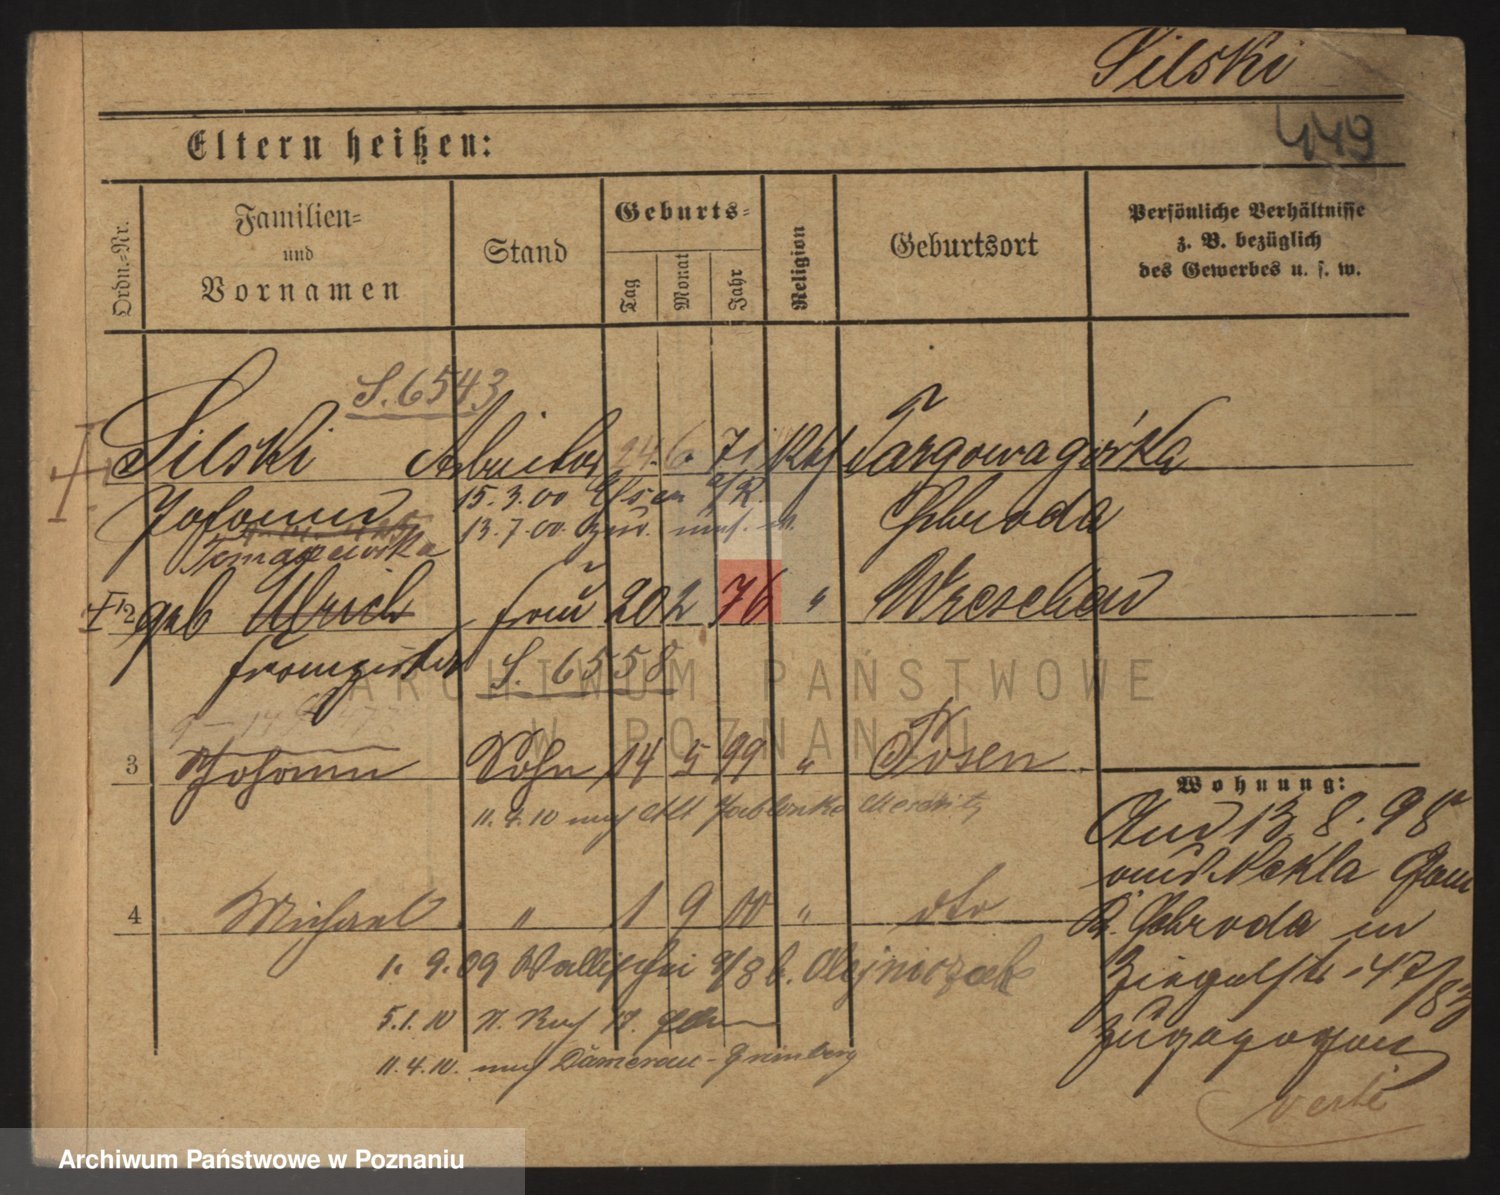 Silski
449
Eltern heißen:
Ordn.-Nr.
Familien-
und
Vornamen
Stand
Geburts-
Tag
Monat
Jahr
Religion
Geburtsort
Persönliche Verhältnisse
z. B. bezüglich
des Gewerbes u. s. w.
S. 6543
Silski Arbeiter 24. 6. 71 Kth Targowagórka
Johann 15. 3. 00 Essen a/R. Schroda
13. 7. 00 zur.
Tomaszewska
12 geb Ulrich Frau 20 2 76 " Wreschen
Franziska S. 6558
3 Johann Sohn 14 5 99 " Posen
11. 4. 10 nach Alt Jablonke Meseritz
Wohnung:
Am 13. 8. 98
aus Nekla
K. Schroda in
Ziegelstr. 47/83
zugezogen
verte
4 Michael " 1 9 00 " dto
1. 9. 09 Wallischei 7/8 b. Olejniczak
5.1.10
11. 4. 10. nach Dämerau-Grünberg
ARCHIWUM PAŃSTWOWE
W POZNANIU
Archiwum Państwowe w Poznaniu